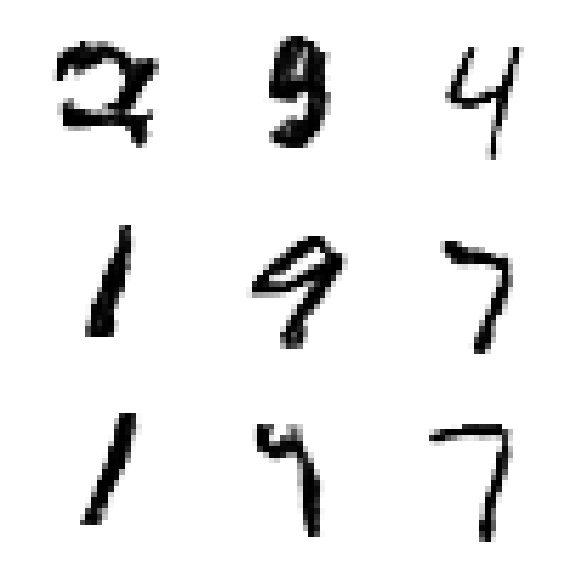 2 9 4
1 9 7
1 9 7